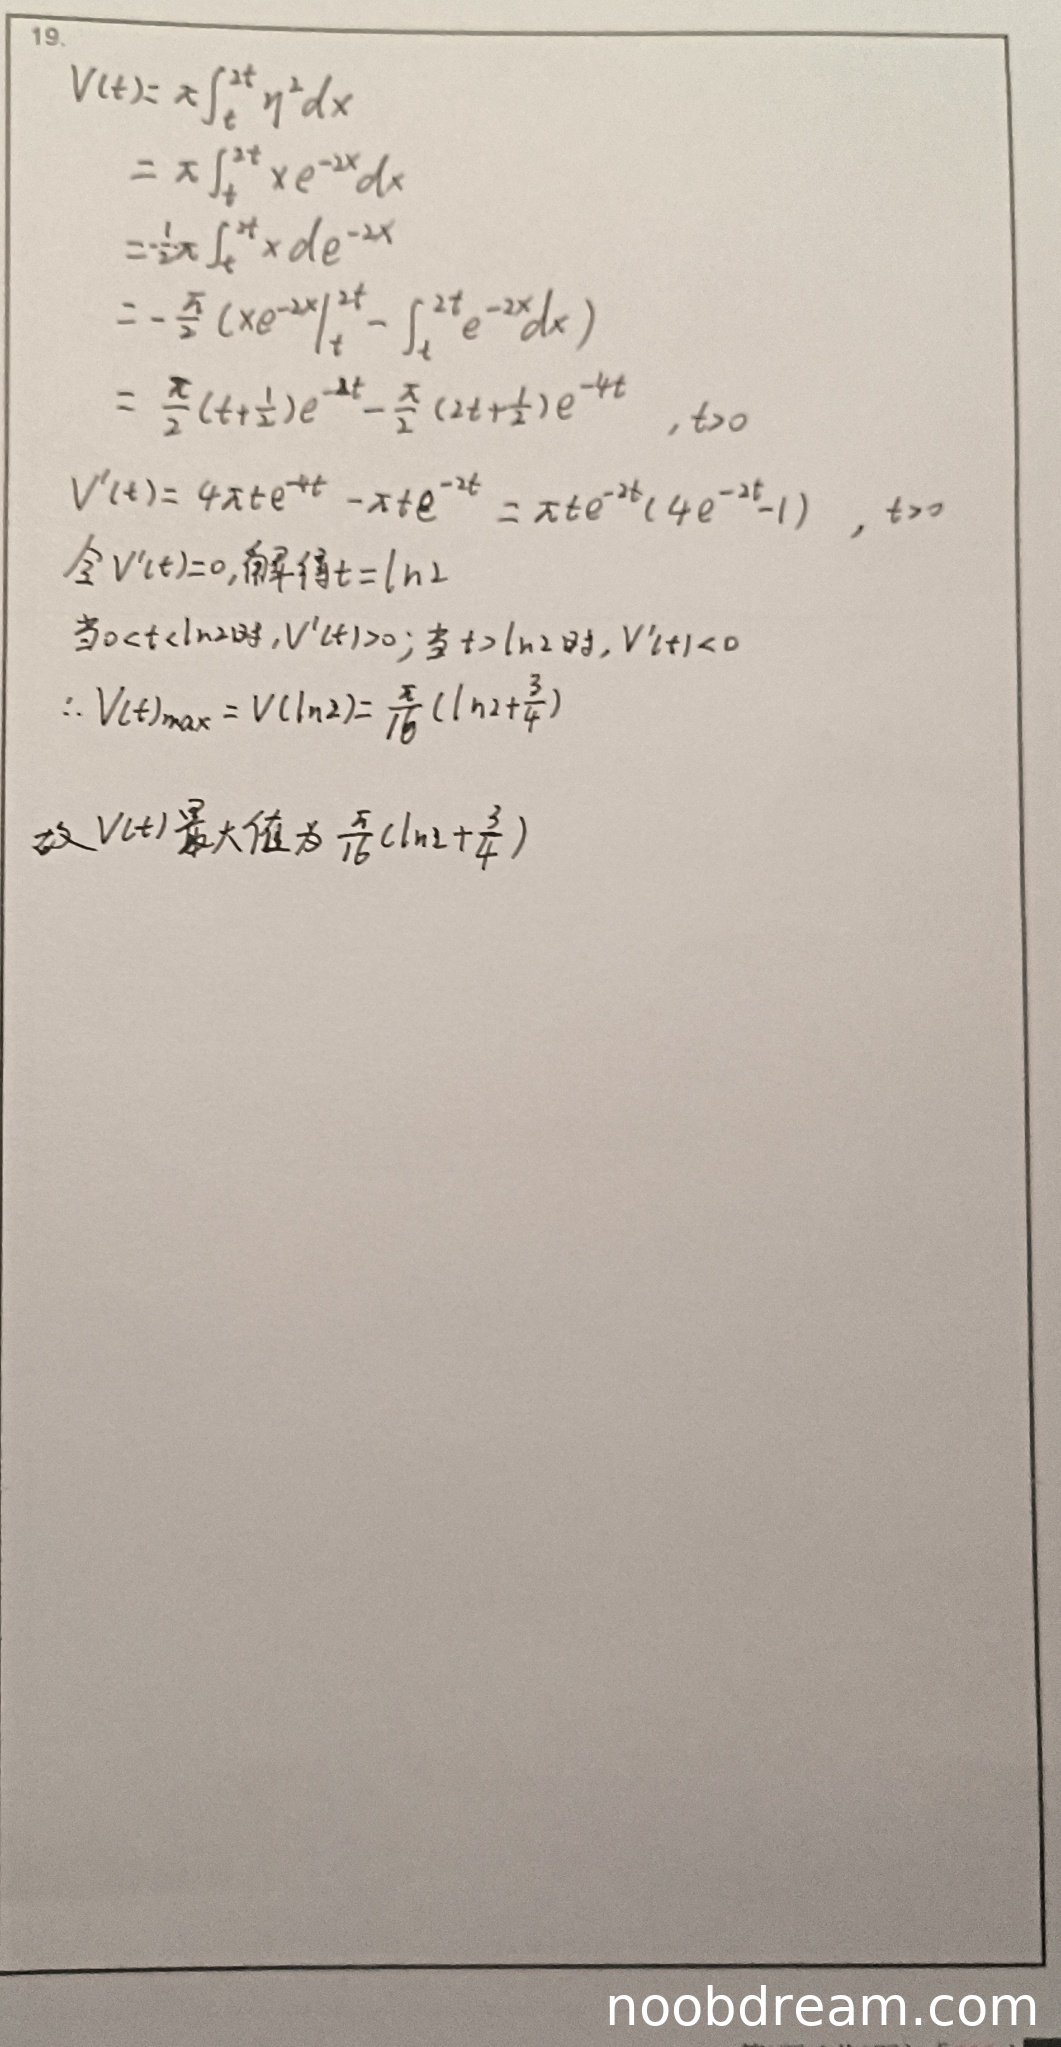 19.
V(t)= π∫_t^{2t} η²dx
= π∫_t^{2t} xe^{-2x}dx
=-½π∫_t^{2t} x de^{-2x}
= -π/2 (xe^{-2x}|_t^{2t} - ∫_t^{2t} e^{-2x}dx)
= π/2 (t+½)e^{-2t} - π/2 (2t+½)e^{-4t} , t>0
V'(t)= 4πte^{-4t} - πte^{-2t} = πte^{-2t}(4e^{-2t}-1) , t>0
令V'(t)=0,解得t=ln2
当0<t<ln2时,V'(t)>0;当t>ln2时,V'(t)<0
∴V(t)max = V(ln2)= π/16 (ln2+3/4)
故V(t)最大值为 π/16 (ln2+3/4)
noobdream.com